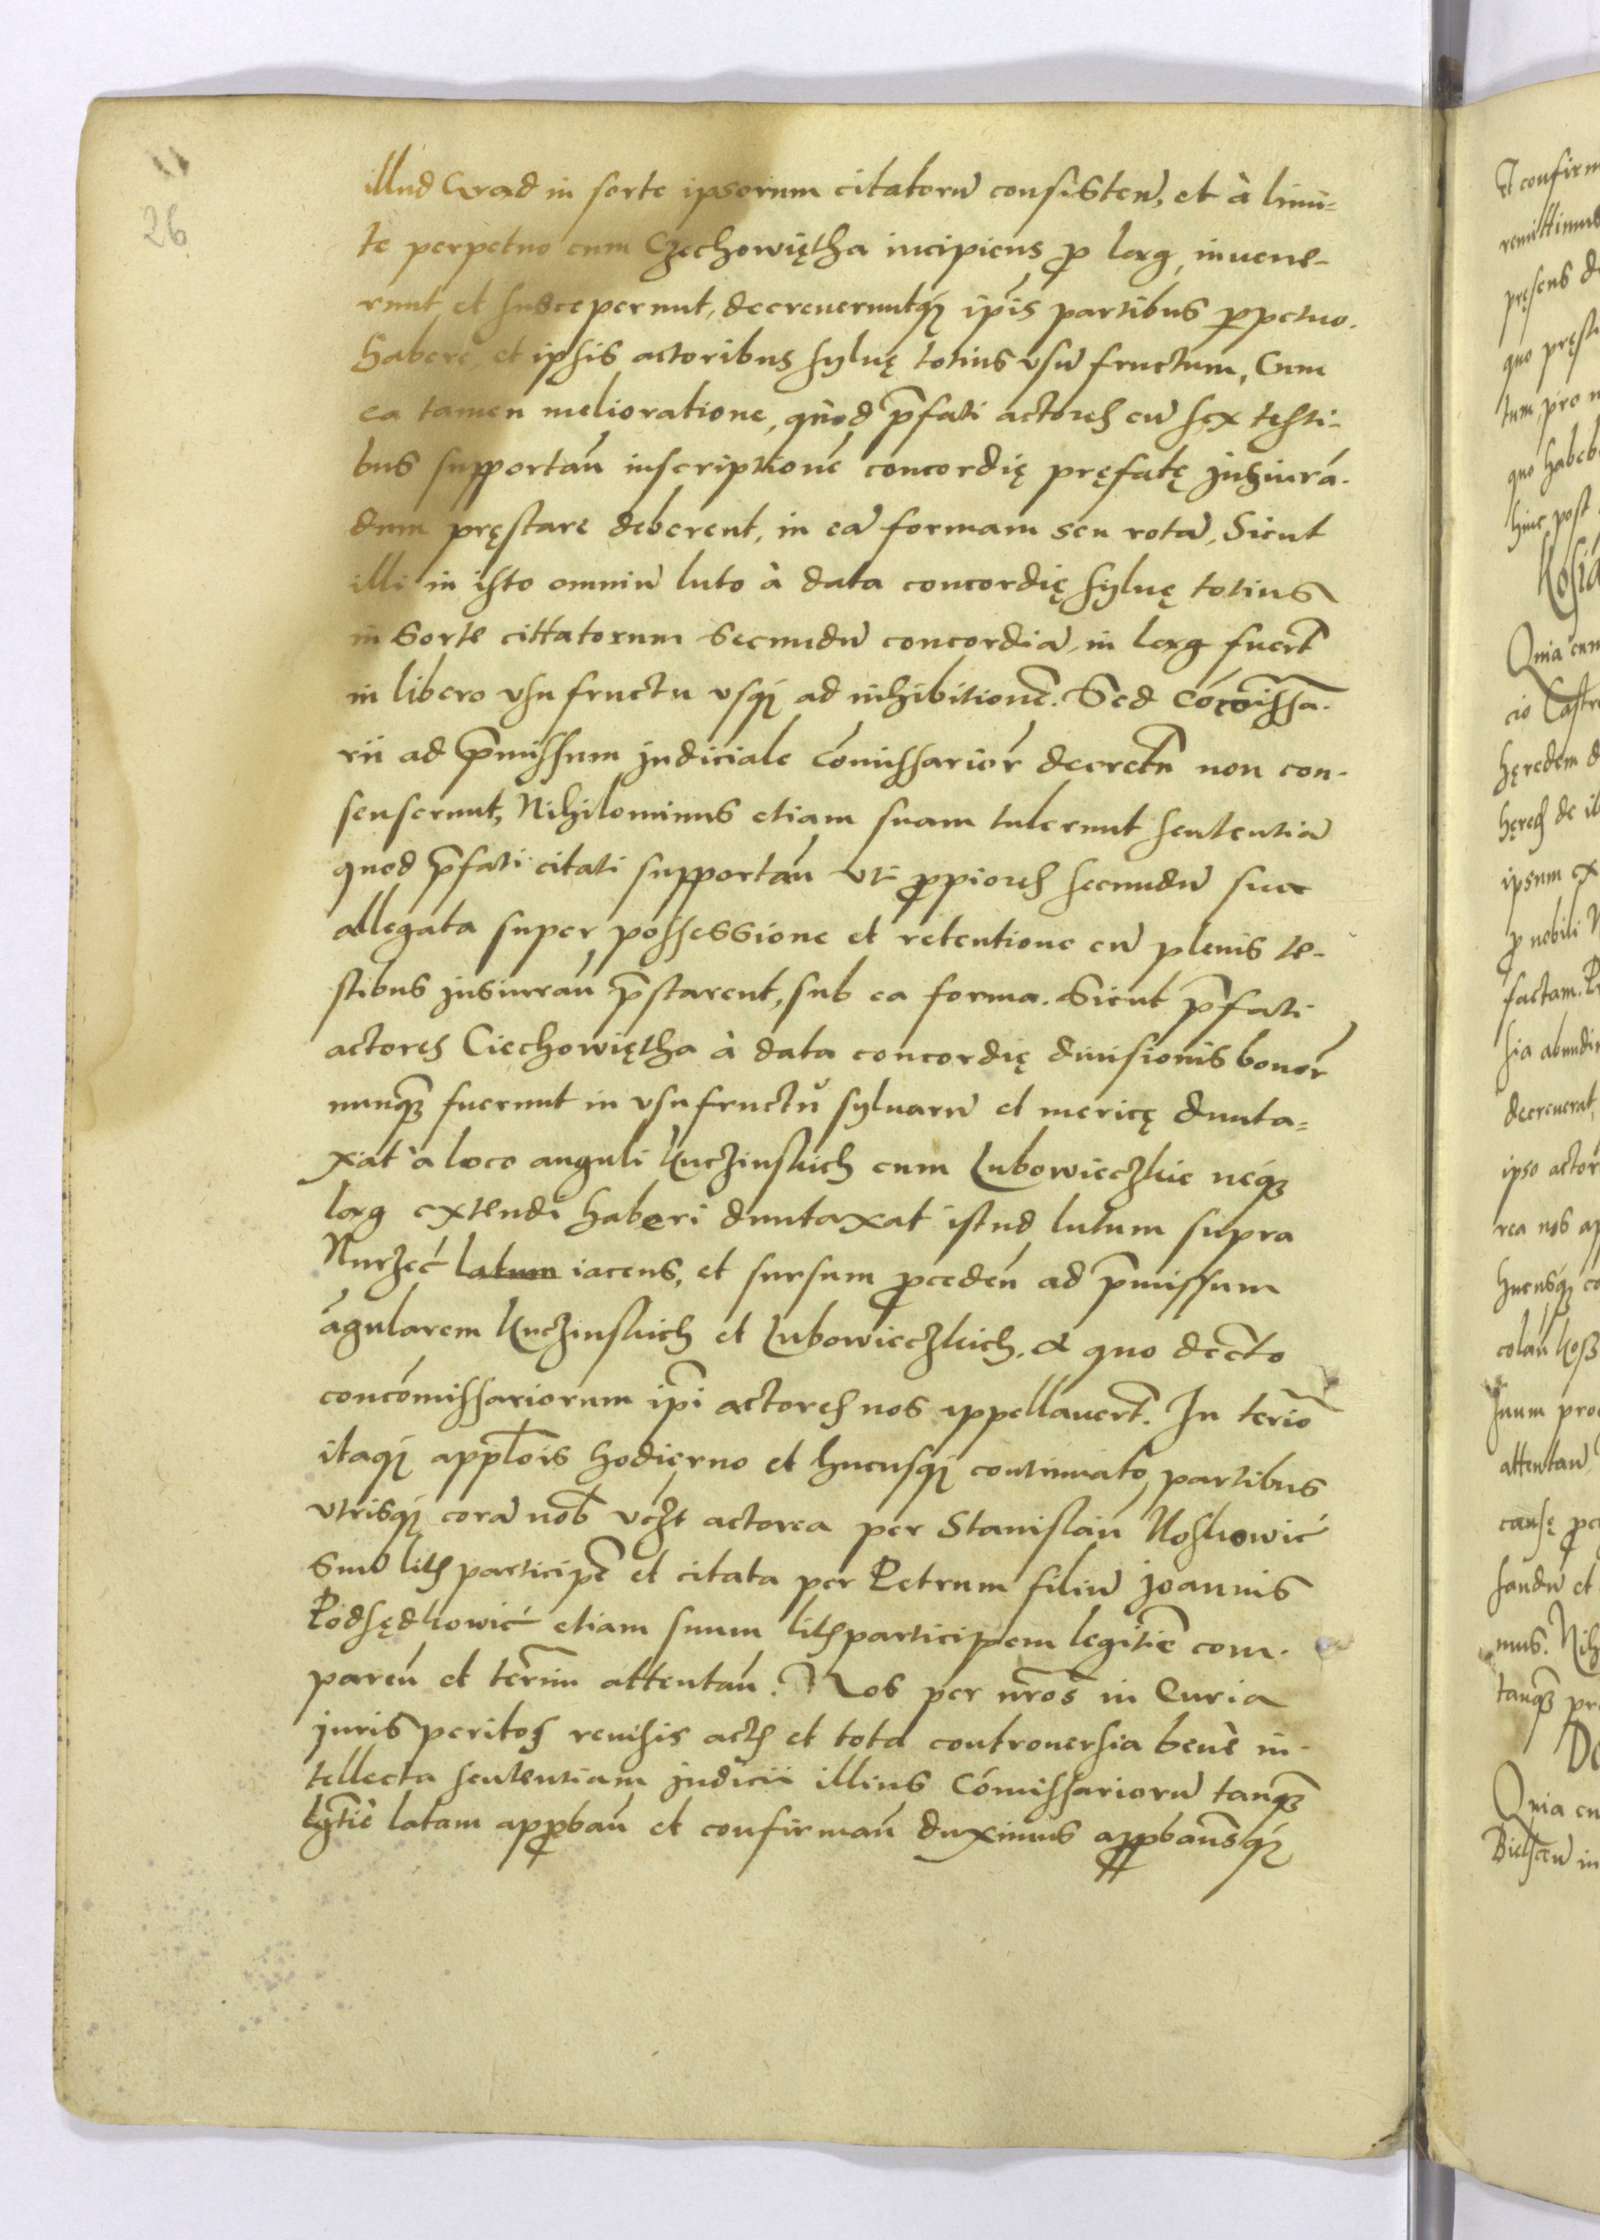 26
illud Grad in sorte ipsorum citatorũ consisteñ, et à limi-
te perpetuo cum Czechowiętha incipiens ꝓ lerg, inuene-
runt et susceperunt, decreueruntqȝ ip̃is partibus ꝑpetuo.
habere, et ipsis actoribus syluę totius vsũ fructum, Cum
ea tamen melioratione, quod p̃fati actores cũ sex testi-
bus supportañ inscriptionẽ concordię pręfatę jusiurã-
dum pręstare deberent, in eã formam seu rotã, Sicut
illi in isto omniũ luto à data concordię syluę totius
in sorte cittatorum secundũ concordiã, in lerg fuert̃
in libero vsu fructu vsqȝ ad inhibitionẽ. Sed Cõcom̃issa-
rii ad p̃missum judiciale Cõmissarioȓ decretũ non con-
senserunt, Nihilominus etiam suam tulerunt sententiã
quod p̃fati citati supportañ vti ꝓpiores secundũ sua
allegata super possessione et retentione cũ plenis te-
stibus jusiurañ p̃starent, sub ea forma. Sicut p̃fati
actores Ciechowiętha à data concordię diuisionis bonoȓ
nunqȝ fuerunt in vsufructũ syluarũ et mericę dunta-
xat à loco anguli Kuczinskich cum Lubowieczkie neqȝ
lerg extendi haberi duntaxat istud lutum supra
Nurzeć latum iacens, et sursum ꝓcedeñ ad p̃missum
ãgularem Kuczinskich et Lubowieczkich. A quo dec̃to
concõmissariorum ip̃i actores nos appellauert̃. In ter̃io
itaqȝ app̃lois hodierno et hucusqȝ continuato, partibus
vtrisqȝ corã nob̃ vczt actorea per Stanislañ Koskowić
suũ litis participẽ et citata per Petrum filiũ Joannis
Podsędkowić etiam suum litisparticipem legitiẽ com-
pareñ et ter̃im attentañ. Nos per nr̃os in Curia
juris peritos reuisis actis et tota controuersia benè in-
tellecta sententiam judicii illius Cõmissariorũ tanqȝ
lg̃tiè latam apꝓbañ et confirmañ duximus apꝓbam̃sqȝ